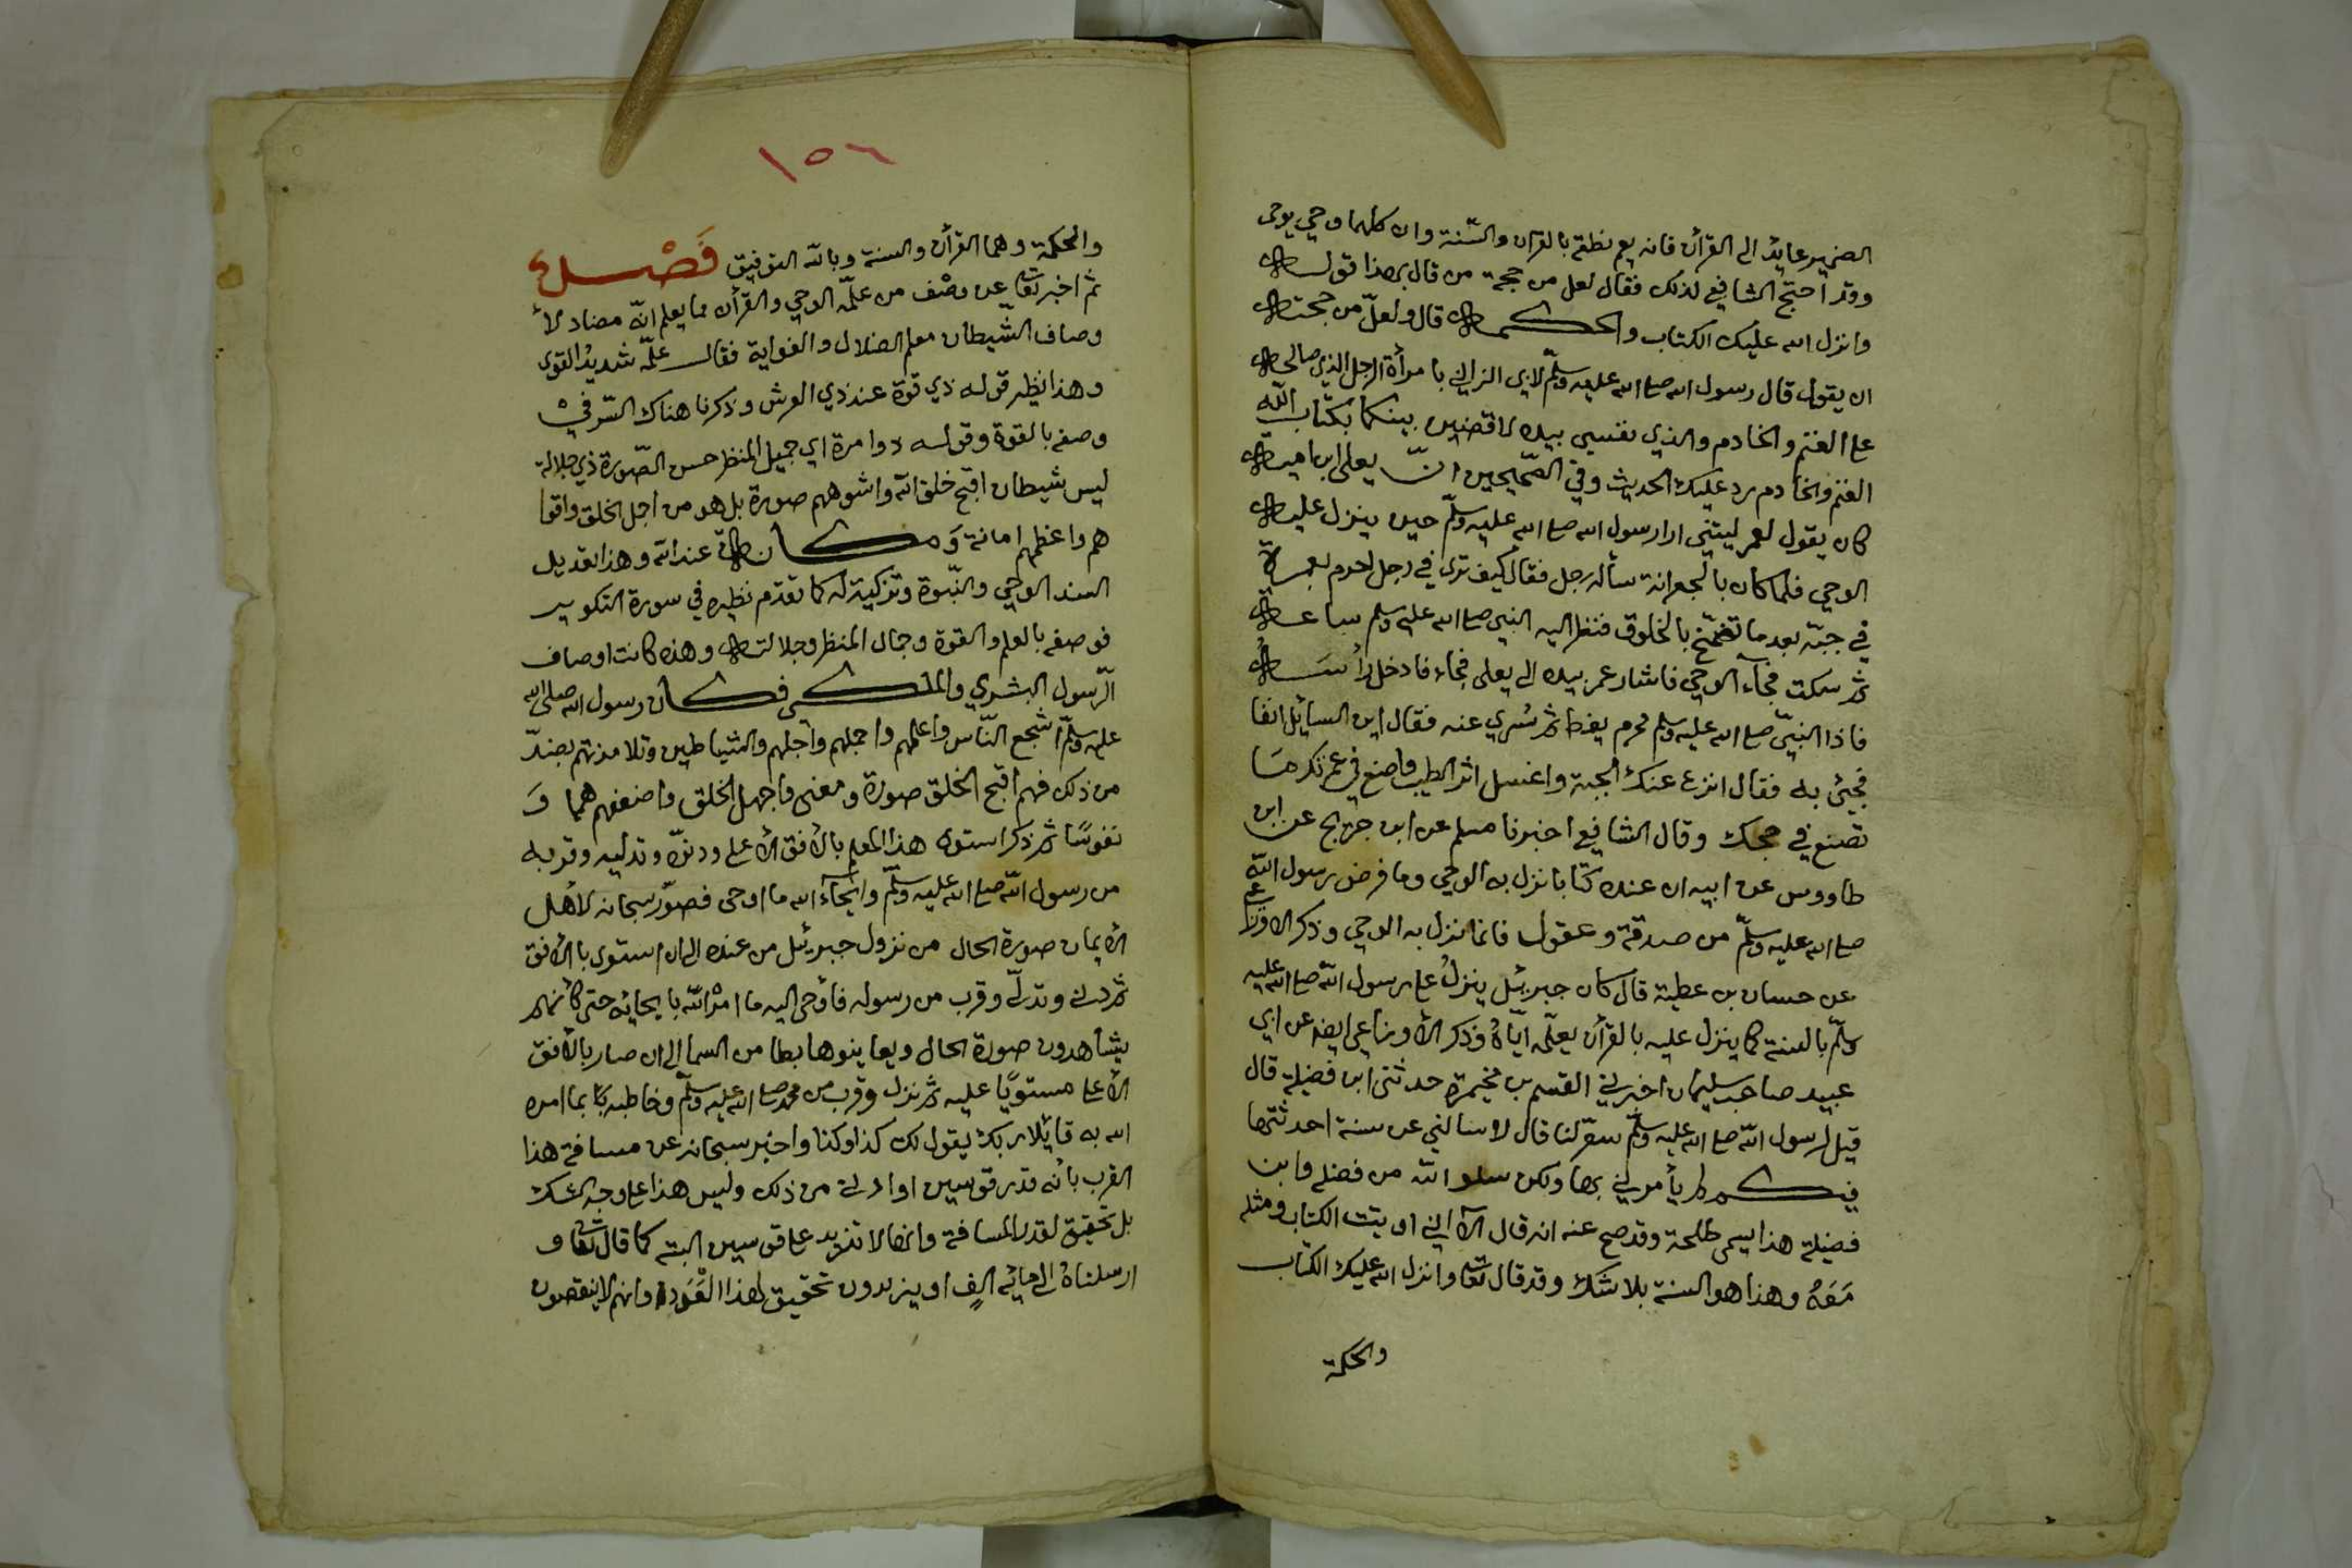 الضمير عايدا الى القرأن فانه يعم نطقه بالقرآن والسّنة وان كلهما وحي يوحى
وقد احتج الشافعي لذلك فقال لعل من حجة من قال بهذا قوله
وانزل الله عليك الكتاب والحكمة قال ولعلّ من حجته
ان يقول قال رسول الله صلى الله عليه وسلّم لابي الزاني بامرأة الرجل الذي صالحه
على الغنم والخادم والذي نفسي بيده لاقضين بينكما بكتاب اللّه
الغنم والخادم رد عليك الحديث وفي الصّحيحين انّ يعلى ابن امية
كان يقول لعمر ليتني ارا رسول الله صلى الله عليه وسلّم حين ينزل عليه
الوحي فلما كان بالجعرانة سأله رجل فقال كيف ترى في رجل احرم بعمرة
في جبّة بعد ما تضمّخ بالخلوق فنظر اليه النبي صلى الله عليه وسلم ساعة
ثم سكت فجآء الوحي فاشار عمر بيده الى يعلى فجاء فادخل رأسه
فاذا النبيّ صلى الله عليه وسلم محرم يغط ثم سُري عنه فقال اين السائل انفا
فجيئ به فقال انزع عنك الجبة واغسل اثر الطيب واصنع في عمرتك ما
تصنع في حجك وقال الشافعي اخبرنا مسلم عن ابن جريج عن ابن
طاووس عن ابيه ان عنده كتابا نزل به الوحي وما فرض رسول اللّه
صلى الله عليه وسلّم من صدقة وعقول فانما نزل به الوحي وذكر الاوزاعي
عن حسان بن عطية قال كان جبريئل ينزلُ على رسول اللّه صلى الله عليه
وسلّم بالسنة كما ينزل عليه بالقرأن يعلّمه ايّاهُ وذكر الأوزاعي ايضا عن ابي
عبيد صاحب سليمان اخبرني القسم بن مخيمرة حدثني ابن فضيلة قال
قيل لرسول اللّه صلى الله عليه وسلّم سعّر لنا قال لا يسالني عن سنة احدثتها
فيكم لم يأمرني بها ولكن سلوا اللّه من فضله وابن
فضيلة هذا يسمى طلحة وقد صح عنه انه قال ألا اني اوتيت الكتاب ومثله
مَعَهُ وهذا هو السنة بلا شك وقد قال تعا وانزل الله عليك الكتاب
والحكمة
١٥٦
والحكمة وهما القرأن والسنة وباللّه التوفيق فَصْل
ثم اخبر تعا عن وصْف من علّمه الوحي والقرأن مما يعلم انّه مضاد لأ
وصاف الشّيطان معلم الضلال والغواية فقال علّمه شديدُ القوى
وهذا نظير قوله ذي قوة عند ذي العرش وذكرنا هناك السّر في
وصفه بالقوة وقوله ذوا مرة اي جميل المنظر حسن الصّورة ذي جلالة
ليس شيطان اقبح خلق اللّه واشوههم صورة بل هو من اجل الخلق واقوا
هم واعظمهم امانة وَمكانة عند اللّه وهذا تعديل
السند الوحي والنّبوة وتزكية له كما تقدّم نظيره في سورة التكوير
فوصفه بالعلم والقوة وجمال المنظر وجلالته وهذه كانت اوصاف
الرّسول البشري والملكي فكان رسول الله صلى الله
عليه وسلّم اشجع النّاس واعلمهم واجملهم وأجلهم والشياطين وتلامذتهم بضدّ
من ذلك فهم اقبح الخلق صورة ومعنى واجهل الخلق واضعفهم همما وَ
نفوسًا ثم ذكر استوآه هذا المعلم بالأفق الأعلى ودنوّه وتدليه وقربه
من رسول اللّه صلى الله عليه وسلّم وايحآء الله ما اوحى فصوّر سبحانه لأهل
الأيمان صورة الحال من نزول جبريئل من عنده الى ان استوى بالأفق
ثم دنى وتدلّى وقرب من رسوله فأوحى اليه ما امرْ اللّه بايحائه حتى كأنهم
يشاهدون صورة الحال ويعاينوها بطا من السما الى ان صار بالأفق
الأعلى مستويًا عليه ثم نزل وقرب من محمد صلى الله عليه وسلّم وخاطبه بما امره
الله به قائلا ربك يقول لك كذا وكذا واخبر سبحانه عن مسافة هذا
القرب بأنه قدر قوسين او ادنى من ذلك وليس هذا على وجه الشك
بل تحقيق لقدر المسافة وانها لا تزيد على قوسين البتة كما قال تعا و
ارسلناهُ الى مائة الفٍ او يزيدون تحقيق لهذا العَدد وانهم لا ينقصون